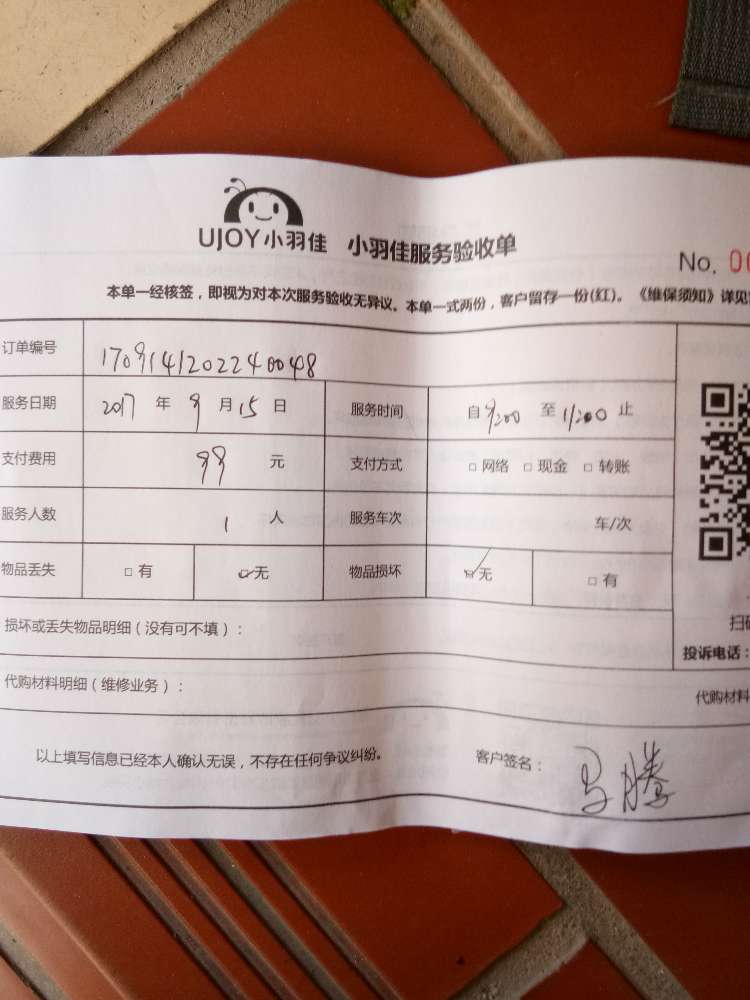 UJOY小羽佳 小羽佳服务验收单
No. 00
本单一经核签，即视为对本次服务验收无异议。本单一式两份，客户留存一份(红)。《维保须知》详见
订单编号 170914120224 0048
服务日期 2017 年 9 月 15 日 服务时间 自 9:00 至 11:00 止
支付费用 99 元 支付方式 □网络 □现金 □转账
服务人数 1 人 服务车次 车/次
物品丢失 □有 ☑无 物品损坏 ☑无 □有
损坏或丢失物品明细（没有可不填）：
扫
投诉电话：
代购材料明细（维修业务）：
代购材料
以上填写信息已经本人确认无误，不存在任何争议纠纷。 客户签名： 马腾